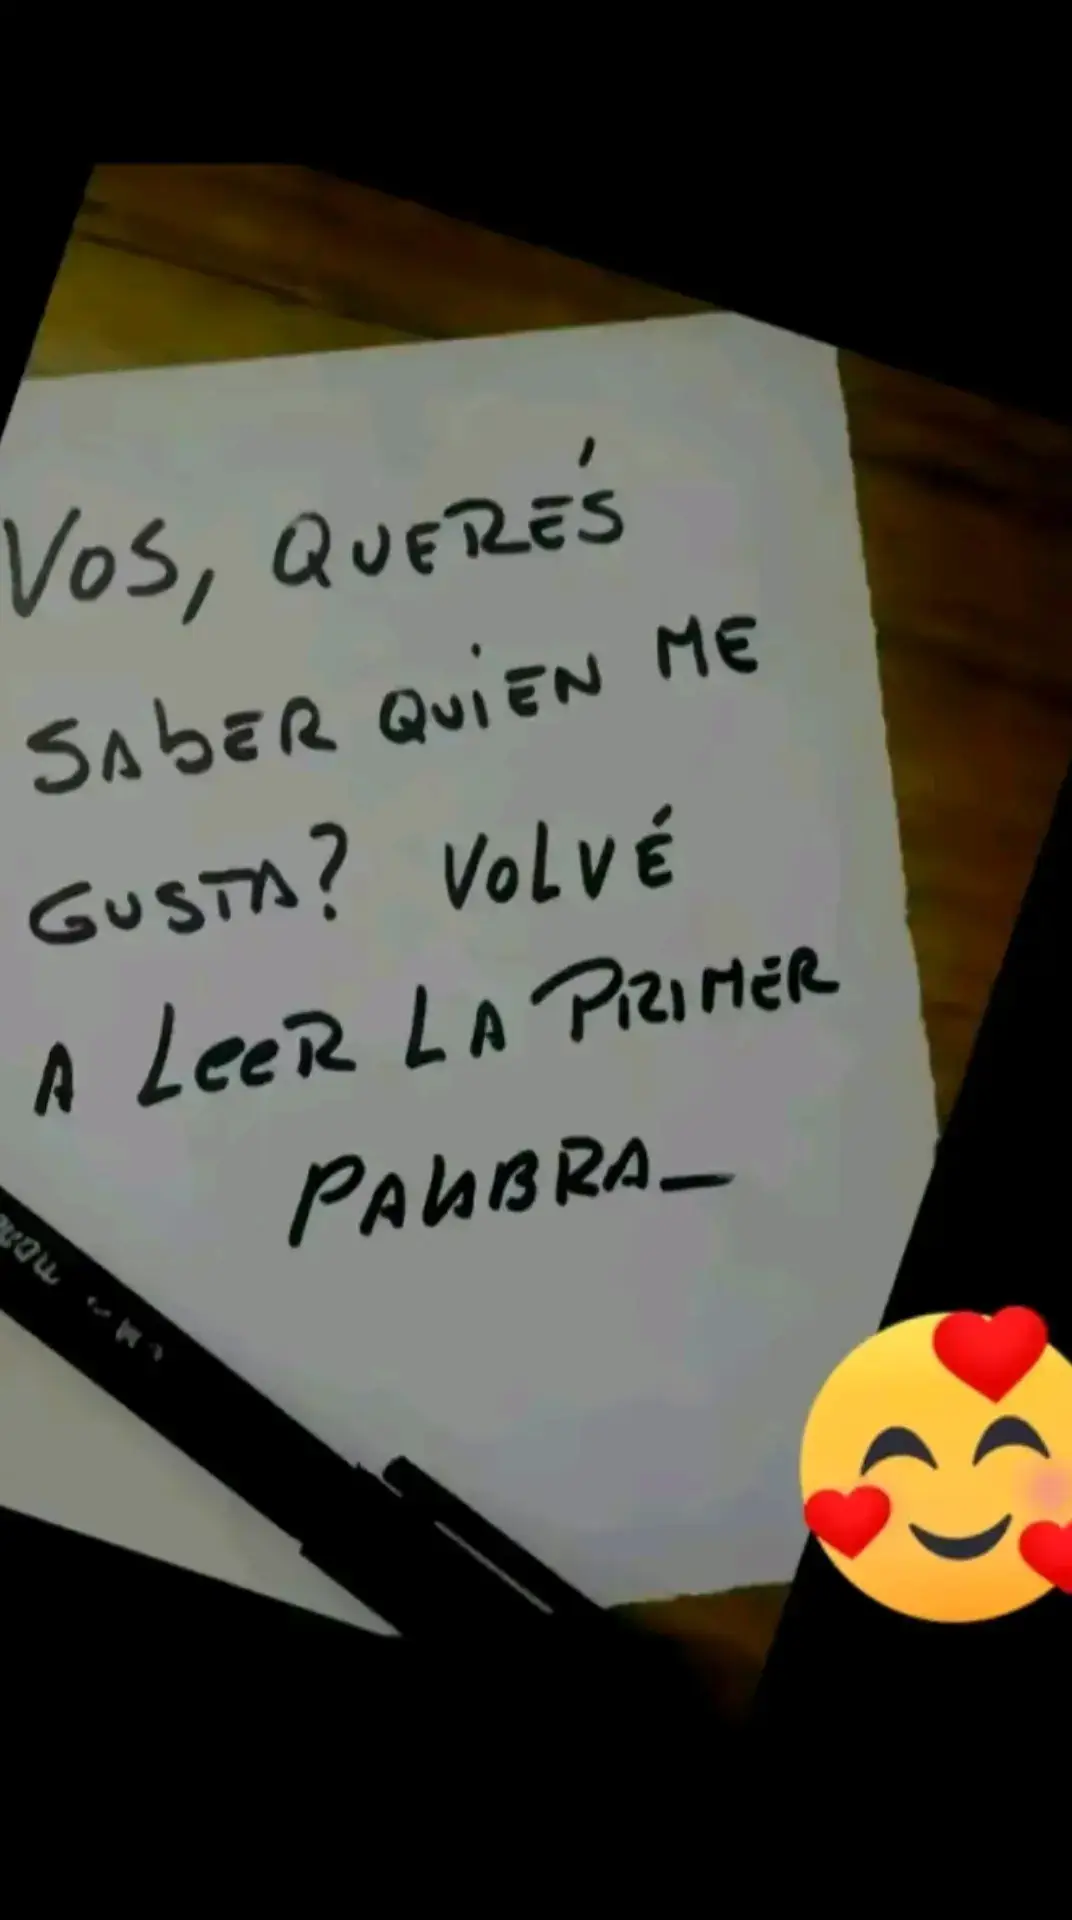 VOS, QUERÉS
SABER QUIEN ME
GUSTA? VOLVÉ
A LEER LA PRIMER
PALABRA_